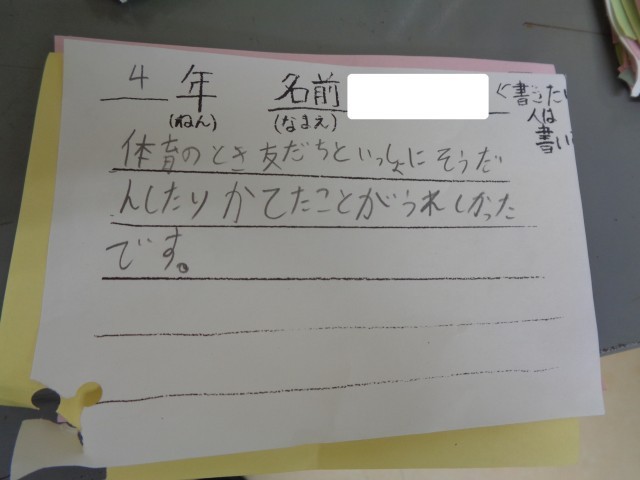 4年 名前 <書きたい
(ねん) (なまえ) 人は
書い
体育のとき友だちといっしょにそうだ
んしたりかてたことがうれしかった
です。